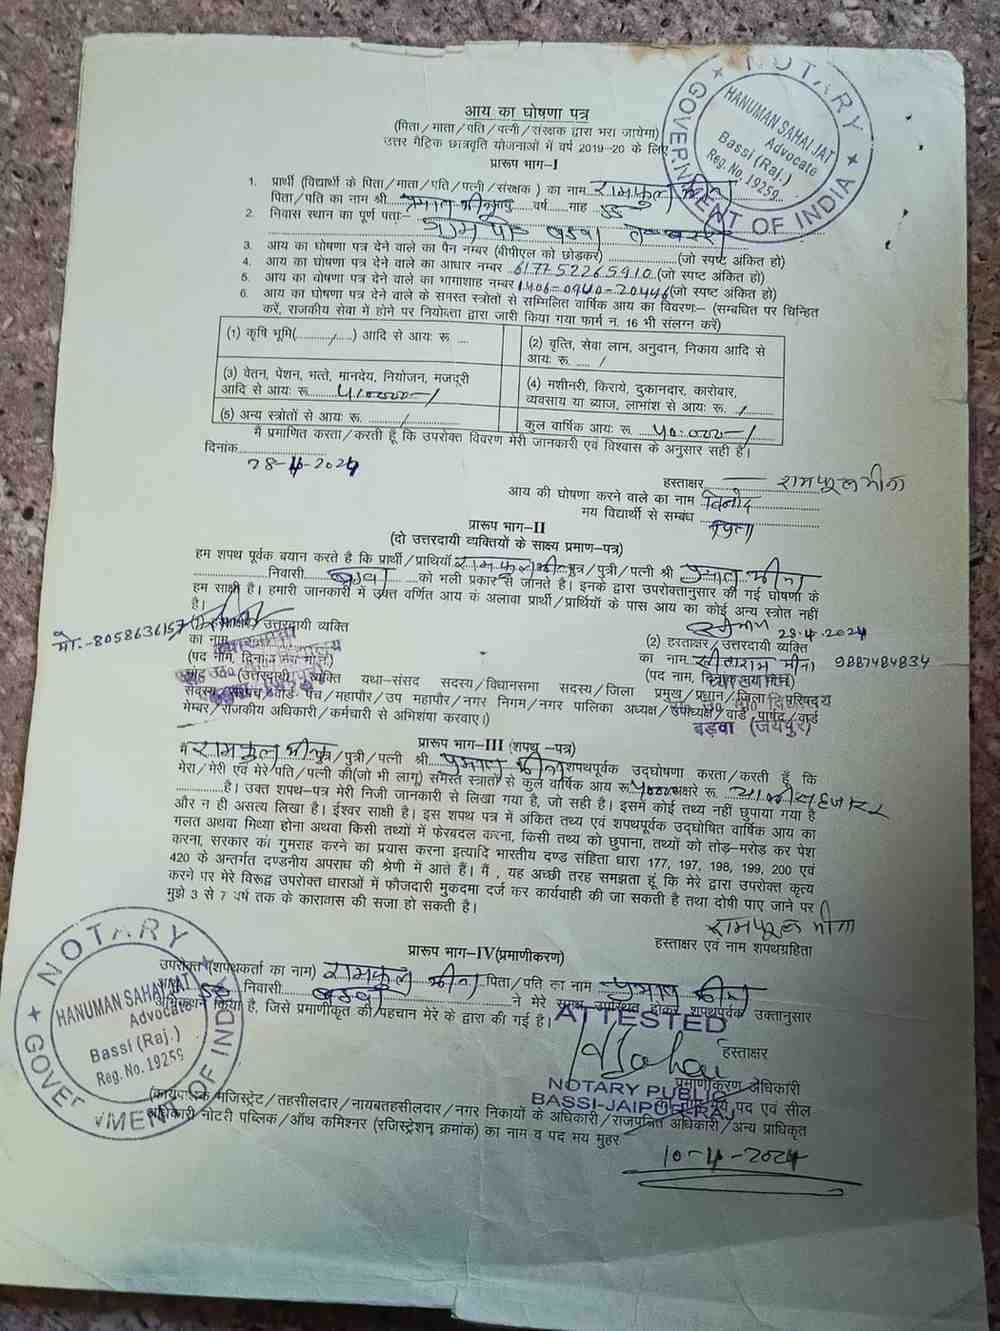 NOTARY
GOVERNMENT OF INDIA
HANUMAN SAHAI JAT
Advocate
Bassi (Raj.)
Reg. No. 19259
आय का घोषणा पत्र
(पिता/माता/पति/पत्नी/संरक्षक द्वारा भरा जायेगा)
उत्तर मैट्रिक छात्रवृति योजनाओं में वर्ष 2019-20 के लिए
प्रारूप भाग-I
1. प्रार्थी (विद्यार्थी के पिता/माता/पति/पत्नी/संरक्षक ) का नाम रामफुल मीना
पिता/पति का नाम श्री वर्ष माह
2. निवास स्थान का पूर्ण पताः-
3. आय का घोषणा पत्र देने वाले का पैन नम्बर (बीपीएल को छोडकर) (जो स्पष्ट अंकित हो)
4. आय का घोषणा पत्र देने वाले का आधार नम्बर 617752265910 (जो स्पष्ट अंकित हो)
5. आय का घोषणा पत्र देने वाले का भामाशाह नम्बर 1406-0940-20446 (जो स्पष्ट अंकित हो)
6. आय का घोषणा पत्र देने वाले के समस्त स्त्रोतों से सम्मिलित वार्षिक आय का विवरणः- (सम्बधित पर चिन्हित
करें, राजकीय सेवा में होने पर नियोक्ता द्वारा जारी किया गया फार्म न. 16 भी संलग्न करें)
(1) कृषि भूमि( ) आदि से आयः रू
(2) वृत्ति, सेवा लाभ, अनुदान, निकाय आदि से
आयः रू.
(3) वेतन, पेंशन, भत्ते, मानदेय, नियोजन, मजदूरी
आदि से आयः रू.
(4) मशीनरी, किराये, दुकानदार, कारोबार,
व्यवसाय या ब्याज, लाभांश से आयः रू.
(5) अन्य स्त्रोतों से आयः रू.
कुल वार्षिक आयः रू.
मैं प्रमाणित करता/करती हूँ कि उपरोक्त विवरण मेरी जानकारी एवं विश्वास के अनुसार सही है।
दिनांक
हस्ताक्षर
आय की घोषणा करने वाले का नाम विनोद
मय विद्यार्थी से सम्बंध पिता
प्रारूप भाग-II
(दो उत्तरदायी व्यक्तियों के साक्ष्य प्रमाण-पत्र)
हम शपथ पूर्वक बयान करते है कि प्रार्थी/प्रार्थियों रामफुल मीना पुत्र/पुत्री/पत्नी श्री
निवासी बडवा को भली प्रकार से जानते है। इनके द्वारा उपरोक्तानुसार की गई घोषणा के
हम साक्षी है। हमारी जानकारी में उक्त वर्णित आय के अलावा प्रार्थी/प्रार्थियों के पास आय का कोई अन्य स्त्रोत नहीं
है।
मो.-8058636157
उत्तरदायी व्यक्ति
का नाम
(पद नाम, दिनांक मय मोहर)
23.4.2024
(2) हस्ताक्षर/उत्तरदायी व्यक्ति
का नाम सीताराम मीना 9887484834
(पद नाम, दिनांक मय मोहर)
(उत्तरदायी व्यक्ति यथा-संसद सदस्य/विधानसभा सदस्य/जिला प्रमुख/प्रधान/जिला परिषद
सदस्य/सरपंच/वार्ड पंच/महापौर/उप महापौर/नगर निगम/नगर पालिका अध्यक्ष/उपाध्यक्ष/वार्ड पार्षद/वार्ड
मेम्बर/राजकीय अधिकारी/कर्मचारी से अभिशंषा करवाए।)
बड़वा (जयपुर)
प्रारूप भाग-III (शपथ -पत्र)
मैं रामफुल मीना पुत्र/पुत्री/पत्नी श्री शपथपूर्वक उद्घोषणा करता/करती हूँ कि
मेरा/मेरी एवं मेरे पति/पत्नी की(जो भी लागू) समस्त स्त्रोतों से कुल वार्षिक आय रू अक्षरे रू.
है। उक्त शपथ-पत्र मेरी निजी जानकारी से लिखा गया है, जो सही है। इसमें कोई तथ्य नहीं छुपाया गया है
और न ही असत्य लिखा है। ईश्वर साक्षी है। इस शपथ पत्र में अंकित तथ्य एवं शपथपूर्वक उद्घोषित वार्षिक आय का
गलत अथवा मिथ्या होना अथवा किसी तथ्यों में फेरबदल करना, किसी तथ्य को छुपाना, तथ्यों को तोड़-मरोड़ कर पेश
करना, सरकार को गुमराह करने का प्रयास करना इत्यादि भारतीय दण्ड संहिता धारा 177, 197, 198, 199, 200 एवं
420 के अन्तर्गत दण्डनीय अपराध की श्रेणी में आते हैं। मैं , यह अच्छी तरह समझता हूं कि मेरे द्वारा उपरोक्त कृत्य
करने पर मेरे विरूद्व उपरोक्त धाराओं में फौजदारी मुकदमा दर्ज कर कार्यवाही की जा सकती है तथा दोषी पाए जाने पर
मुझे 3 से 7 वर्ष तक के कारावास की सजा हो सकती है।
हस्ताक्षर एवं नाम शपथग्रहिता
प्रारूप भाग-IV(प्रमाणीकरण)
उपरोक्त (शपथकर्ता का नाम) रामफुल मीना पिता/पति का नाम
निवासी बडवा ने मेरे समक्ष उपस्थित होकर शपथपूर्वक उक्तानुसार
अभिकथन किया है, जिसे प्रमाणीकृत की/पहचान मेरे के द्वारा की गई है।
ATTESTED
हस्ताक्षर
प्रमाणीकरण अधिकारी
NOTARY PUBLIC
BASSI-JAIPUR (RAJ.)
पद एवं सील
(कार्यपालक मजिस्ट्रेट/तहसीलदार/नायबतहसीलदार/नगर निकायों के अधिकारी/राजपत्रित अधिकारी/अन्य प्राधिकृत
अधिकारी नोटरी पब्लिक/ऑथ कमिश्नर (रजिस्ट्रेशन क्रमांक) का नाम व पद मय मुहर
NOTARY
GOVERNMENT OF INDIA
HANUMAN SAHAI JAT
Advocate
Bassi (Raj.)
Reg. No. 19259
10-4-2024